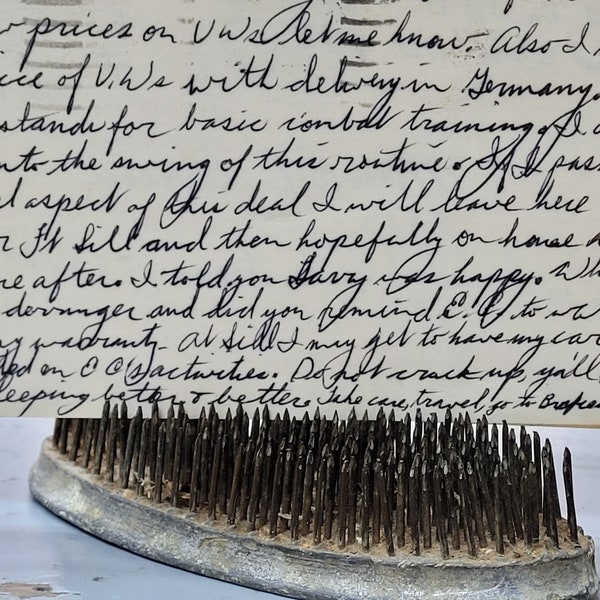 prices on VWs let me know. Also I
ice of V.W's with delivery in Germany.
stands for basic combat training. I
into the swing of this routine. If I pass
l aspect of this deal I will leave here
r Ft Sill and then hopefully on home
re after. I told you was happy. Wh
and did you remind C.C. to wa
ng warranty. At Sill I may get to have my car
ed on C C(s) activities. Do not crack up, ya'll
eeping better & better. Take care, travel, go to